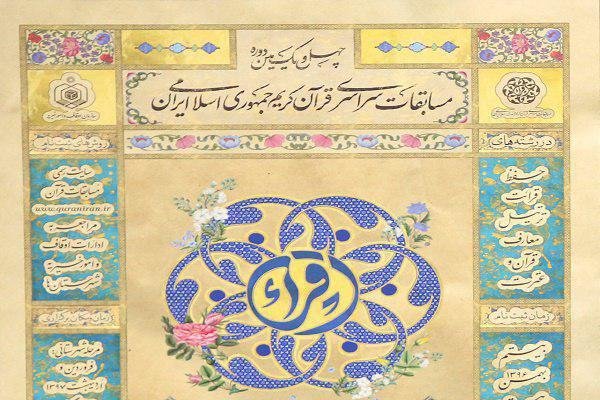 چهل و یکمین دوره
مسابقات سراسری قرآن کریم جمهوری اسلامی ایران
در رشته‌های
حفظ
قرائت
ترتیل
معارف
قرآن و
عترت
زمان ثبت نام
بیستم
بهمن
۱۳۹۶
اقراء
روش‌های ثبت نام
سایت رسمی
مسابقات قرآن
www.quraniran.ir
مراجعه به
ادارات اوقاف
و امور خیریه
شهرستان‌ها
زمان و مکان برگزاری
مرحله شهرستانی:
فروردین و
اردیبهشت ۱۳۹۷